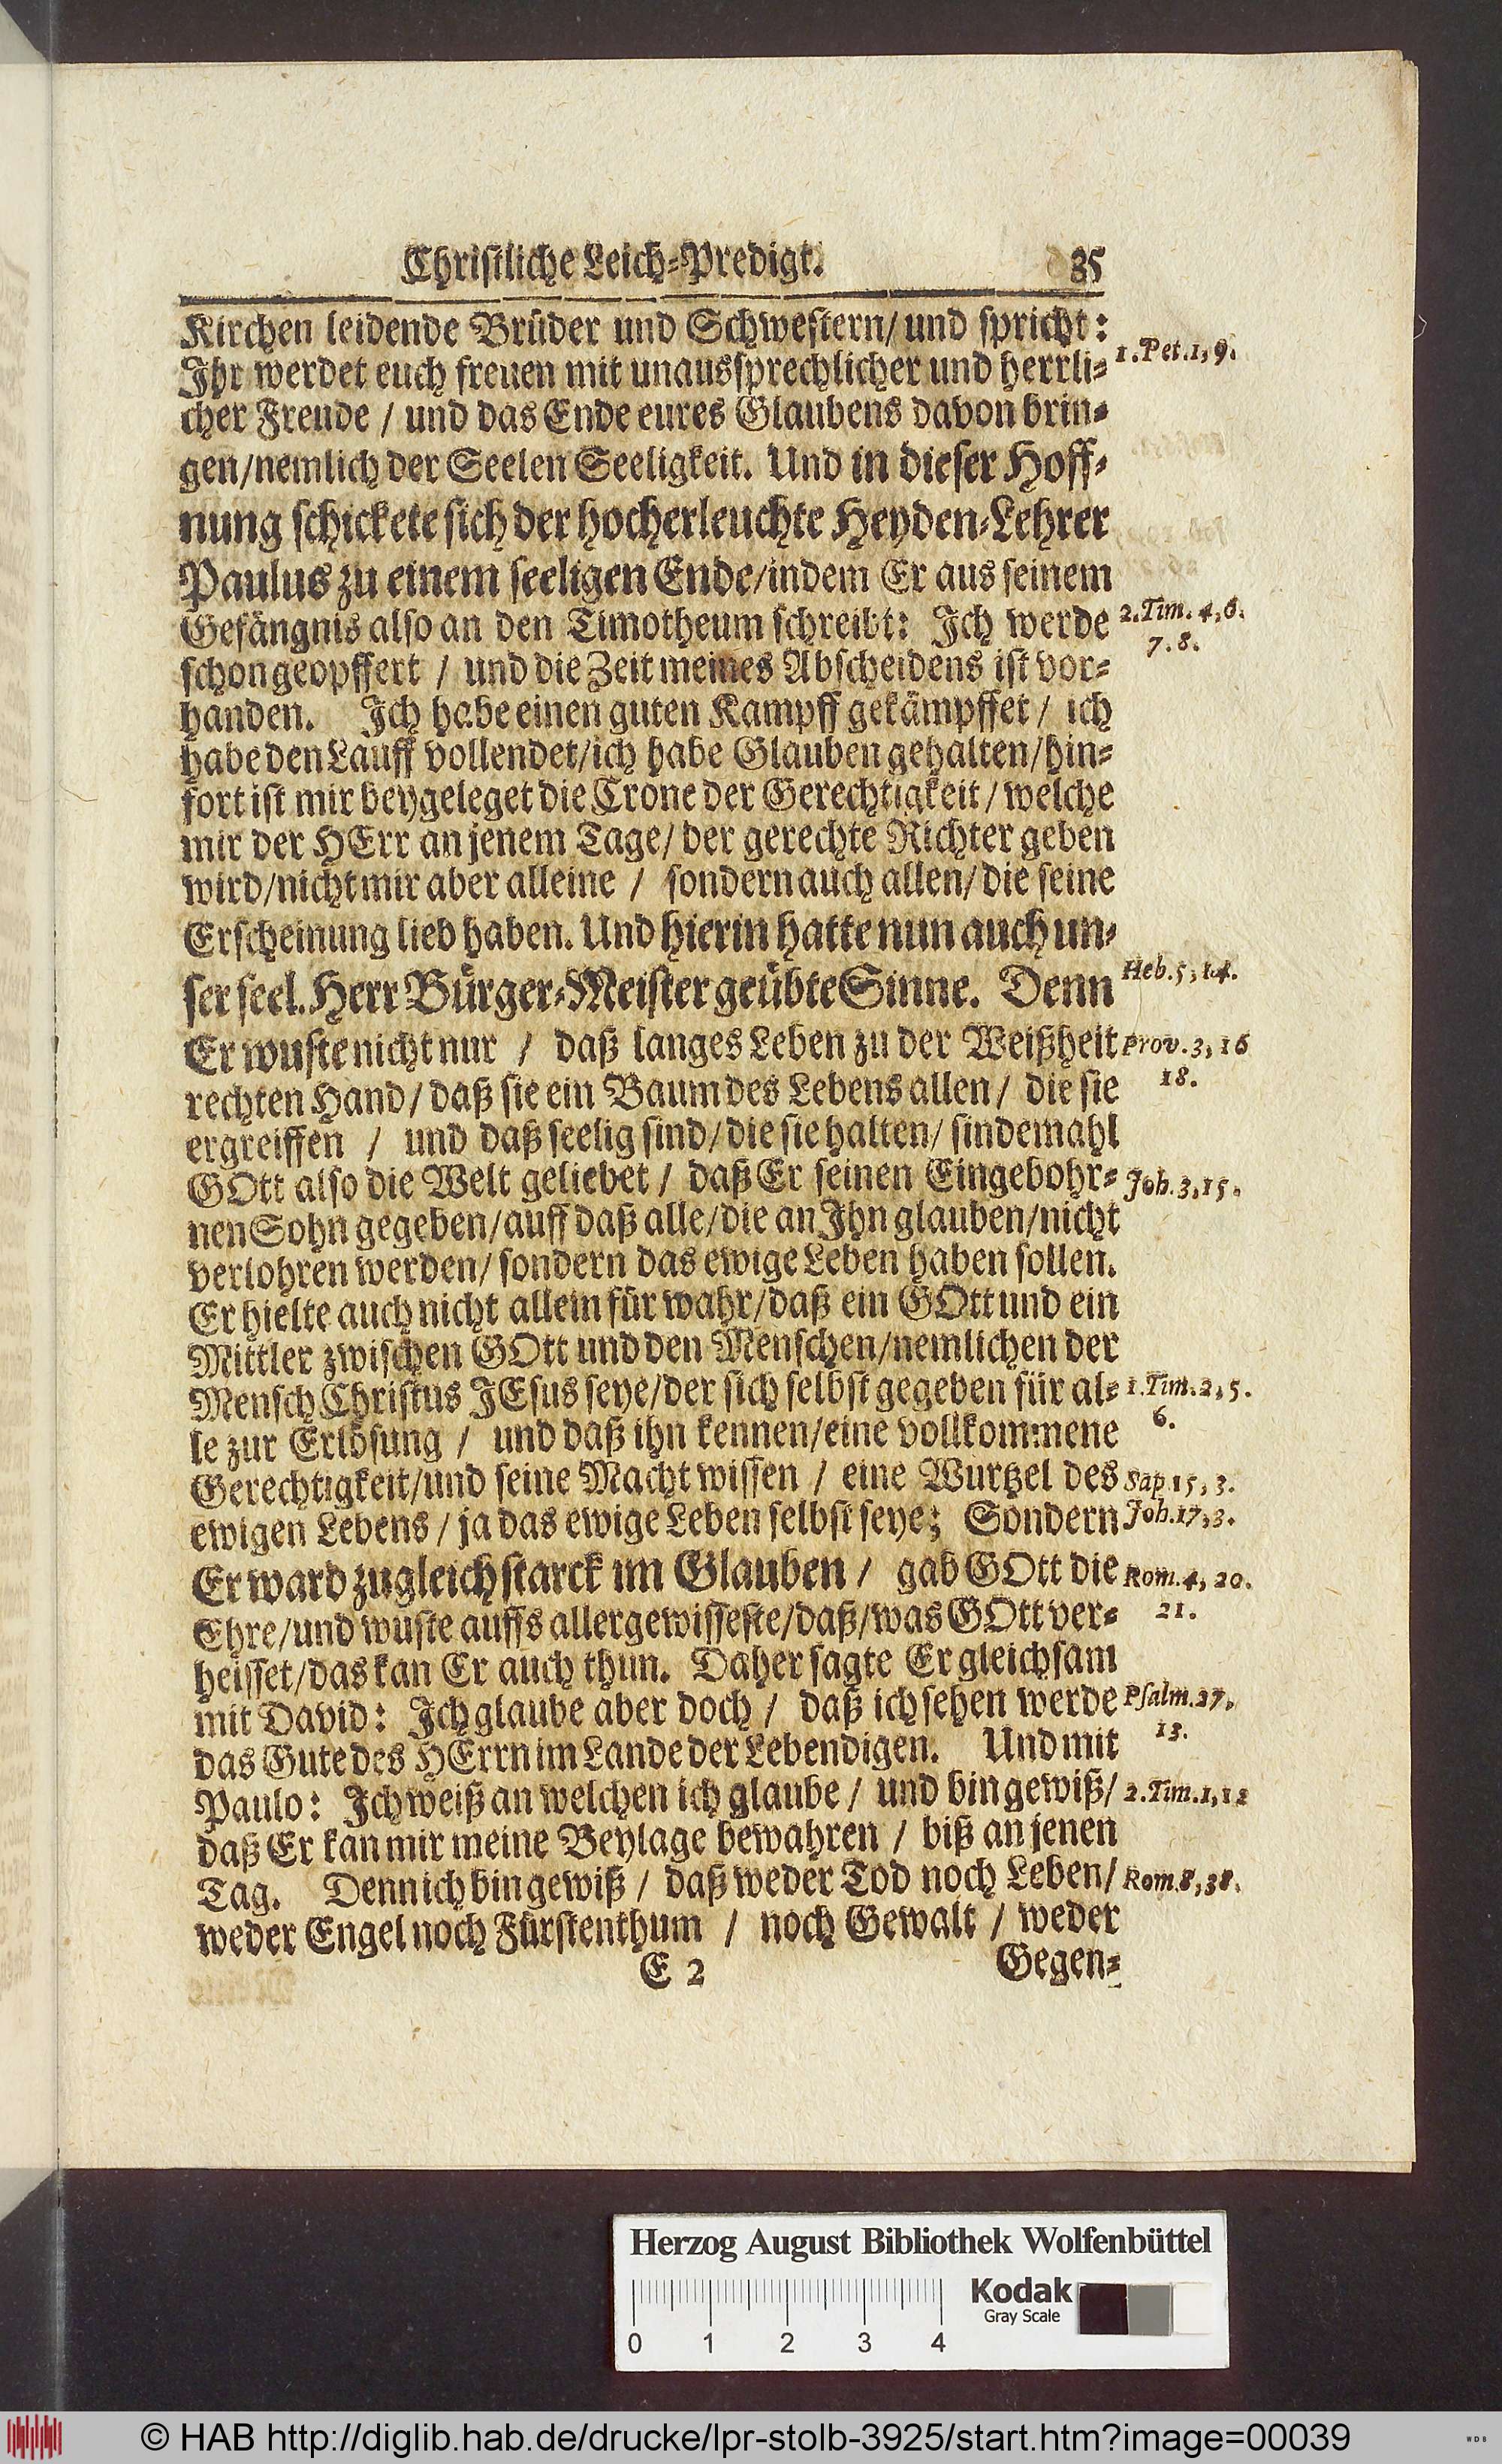 Christliche Leich-Predigt. 35
Kirchen leidende Brüder und Schwestern/ und spricht:
Ihr werdet euch freuen mit unaussprechlicher und herrli- 1. Pet. 1, 9.
cher Freude / und das Ende eures Glaubens davon brin-
gen/nemlich der Seelen Seeligkeit. Und in dieser Hoff-
nung schickete sich der hocherleuchte Heyden-Lehrer
Paulus zu einem seeligen Ende/indem Er aus seinem
Gefängnis also an den Timotheum schreibt: Ich werde 2. Tim. 4, 6.
schon geopffert / und die Zeit meines Abscheidens ist vor- 7. 8.
handen. Ich habe einen guten Kampff gekämpffet / ich
habe den Lauff vollendet/ich habe Glauben gehalten/hin-
fort ist mir beygeleget die Crone der Gerechtigkeit / welche
mir der HErr an jenem Tage/ der gerechte Richter geben
wird/nicht mir aber alleine / sondern auch allen/ die seine
Erscheinung lieb haben. Und hierin hatte nun auch un-
ser seel. Herr Bürger-Meister geübte Sinne. Denn Heb. 5, 14.
Er wuste nicht nur / daß langes Leben zu der Weißheit Prov. 3, 16
rechten Hand/ daß sie ein Baum des Lebens allen / die sie 18.
ergreiffen / und daß seelig sind/ die sie halten/ sindemahl
GOtt also die Welt geliebet / daß Er seinen Eingebohr- Joh. 3, 15.
nen Sohn gegeben/auff daß alle/die an Ihn glauben/nicht
verlohren werden/ sondern das ewige Leben haben sollen.
Er hielte auch nicht allein für wahr/daß ein GOtt und ein
Mittler zwischen GOtt und den Menschen/nemlichen der
Mensch Christus JEsus seye/der sich selbst gegeben für al- 1. Tim. 2, 5.
le zur Erlösung / und daß ihn kennen/eine vollkommene 6.
Gerechtigkeit/und seine Macht wissen / eine Wurtzel des Sap. 15, 3.
ewigen Lebens / ja das ewige Leben selbst seye; Sondern Joh. 17, 3.
Er ward zugleich starck im Glauben / gab GOtt die Rom. 4, 20.
Ehre/und wuste auffs allergewisseste/daß/was GOtt ver- 21.
heisset/das kan Er auch thun. Daher sagte Er gleichsam
mit David: Ich glaube aber doch / daß ich sehen werde Psalm. 27.
das Gute des HErrn im Lande der Lebendigen. Und mit 13.
Paulo: Ich weiß an welchen ich glaube / und bin gewiß/ 2. Tim. 1, 12
daß Er kan mir meine Beylage bewahren / biß an jenen
Tag. Denn ich bin gewiß / daß weder Tod noch Leben/ Rom. 8, 38.
weder Engel noch Fürstenthum / noch Gewalt / weder
E 2 Gegen-
Herzog August Bibliothek Wolfenbüttel
Kodak
Gray Scale
0 1 2 3 4
© HAB http://diglib.hab.de/drucke/lpr-stolb-3925/start.htm?image=00039
WDB